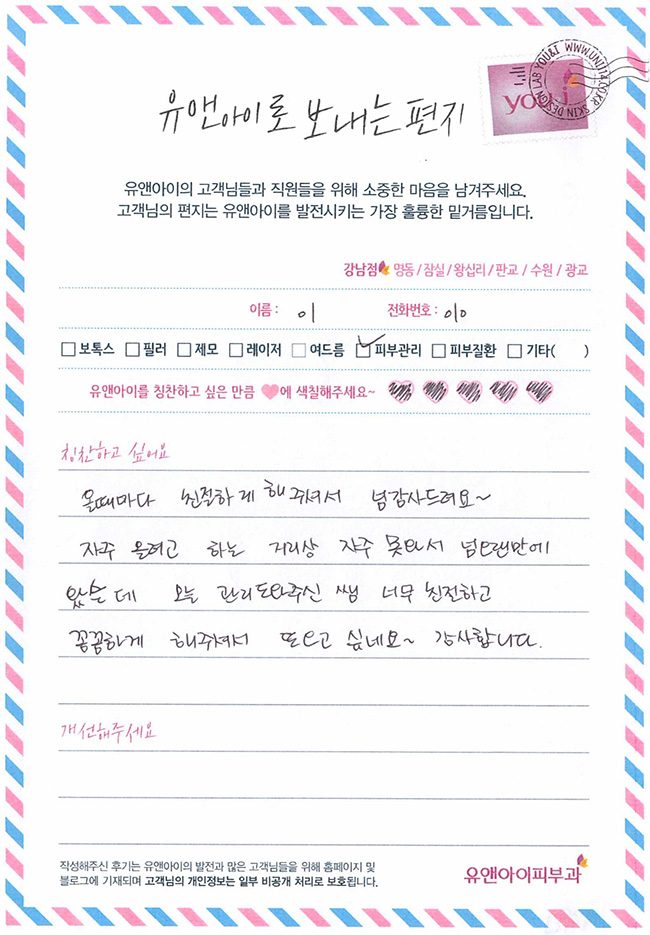 유앤아이로 보내는 편지
you&i
SKIN DESIGN LAB YOU&I WWW.UNI114.CO.KR
유앤아이의 고객님들과 직원들을 위해 소중한 마음을 남겨주세요.
고객님의 편지는 유앤아이를 발전시키는 가장 훌륭한 밑거름입니다.
강남점 명동 / 잠실 / 왕십리 / 판교 / 수원 / 광교
이름 : 이 전화번호 : 010
보톡스 필러 제모 레이저 여드름 피부관리 피부질환 기타( )
유앤아이를 칭찬하고 싶은 만큼 에 색칠해주세요~
칭찬하고 싶어요
올때마다 친절하게 해주셔서 넘감사드려요~
자주 올려고 하는 거리상 자주 못와서 넘오랜만에
왔는데 오늘 관리도와주신 쌤 너무 친절하고
꼼꼼하게 해주셔서 또오고 싶네요~ 감사합니다.
개선해주세요
작성해주신 후기는 유앤아이의 발전과 많은 고객님들을 위해 홈페이지 및
블로그에 기재되며 고객님의 개인정보는 일부 비공개 처리로 보호됩니다.
유앤아이피부과